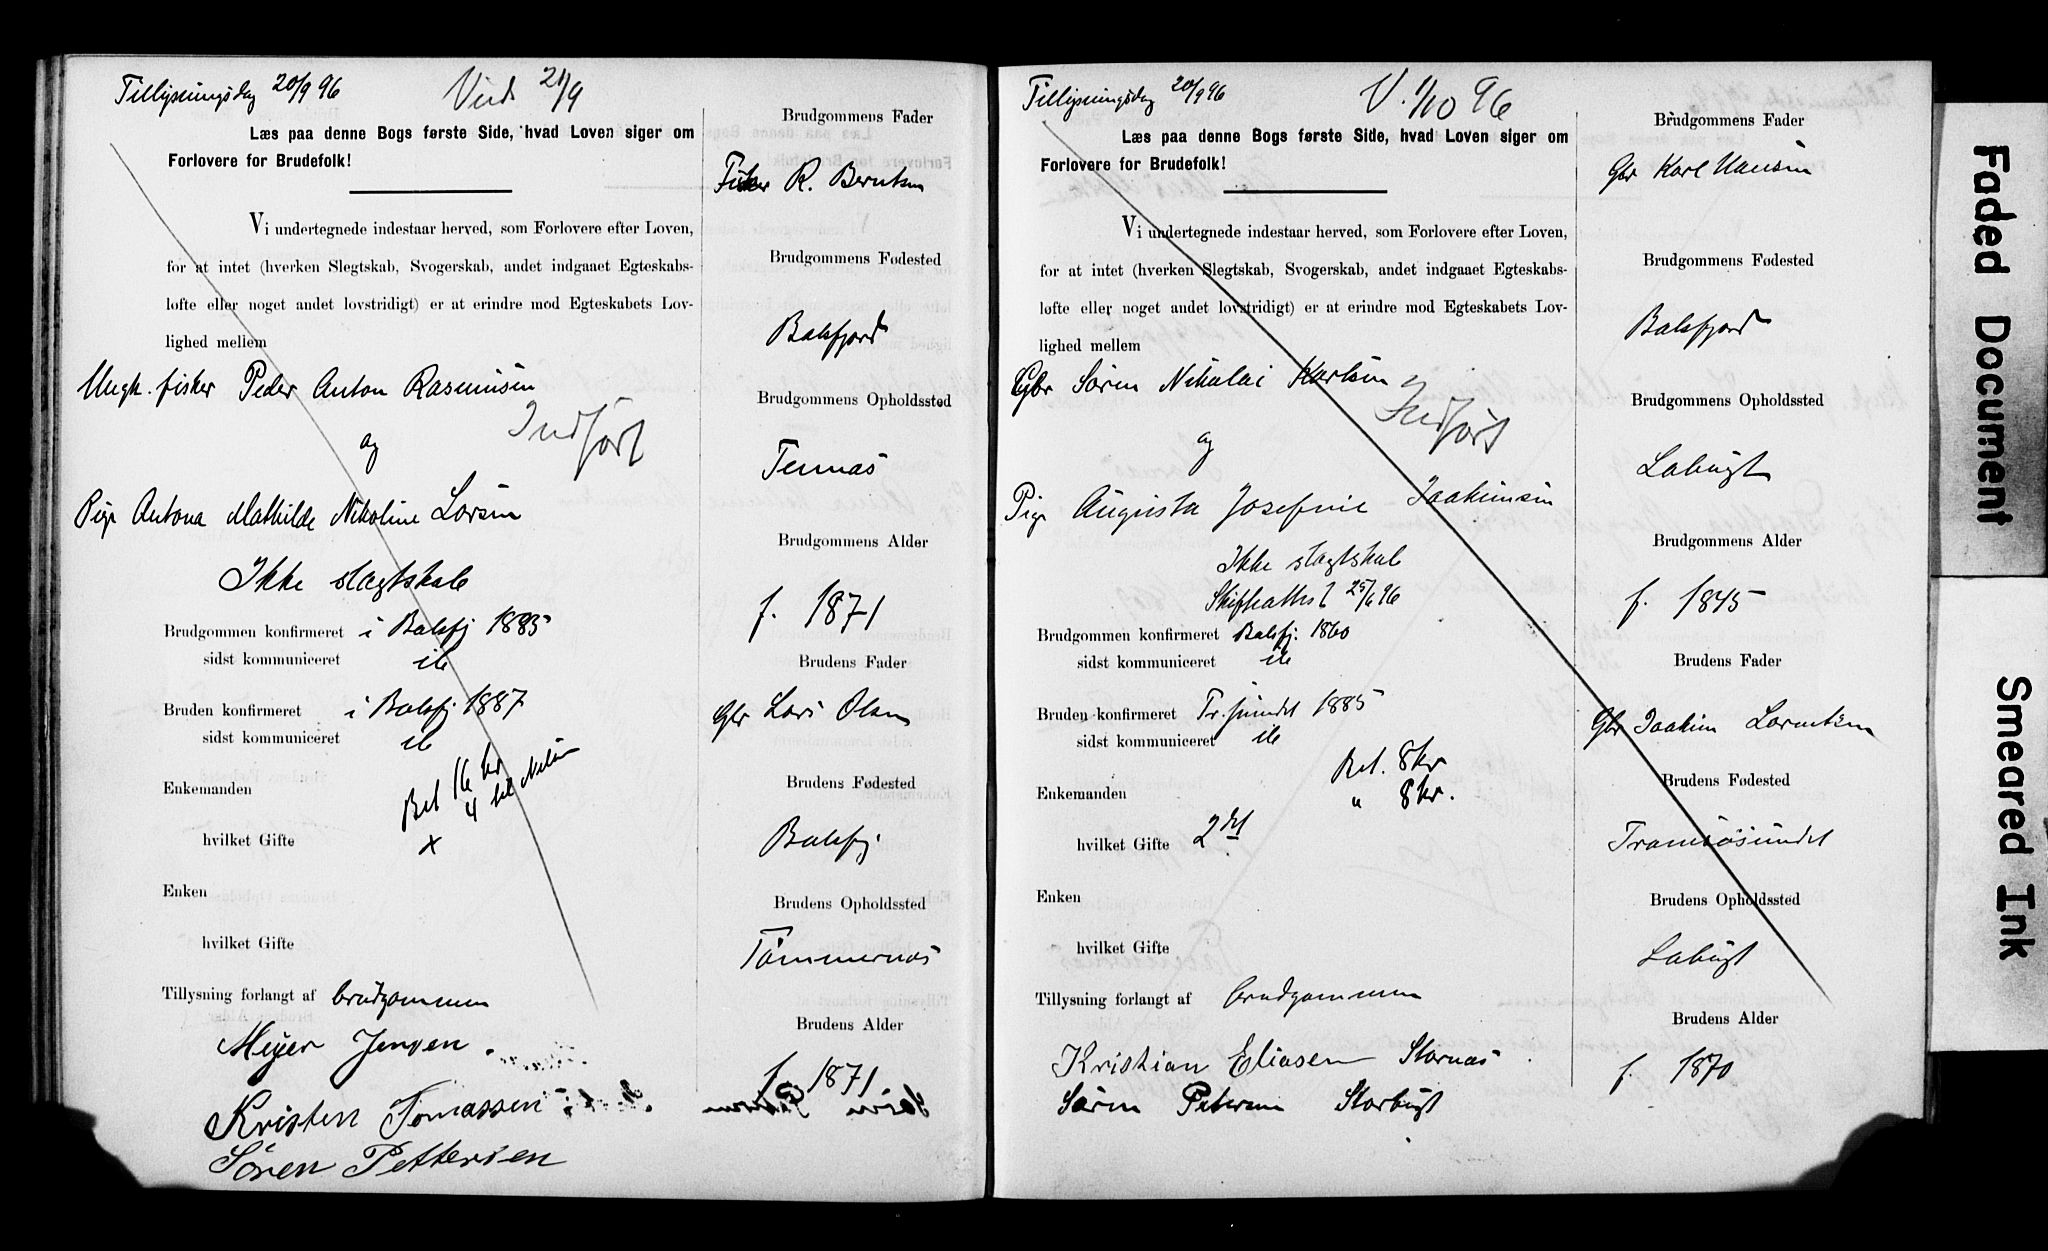 Tillysningsdag 20/9 96 Vied 21/9
Læs paa denne Bogs første Side, hvad Loven siger om
Forlovere for Brudefolk!
Vi undertegnede indestaar herved, som Forlovere efter Loven,
for at intet (hverken Slegtskab, Svogerskab, andet indgaaet Egteskabs-
løfte eller noget andet lovstridigt) er at erindre mod Egteskabets Lov-
lighed mellem
Ungk. fisker Peder Anton Rasmusen
Indført
og
Pige Antona Mathilde Nikoline Larsen
Ikke slægtskab
Brudgommen konfirmeret i Balsfj 1885
sidst kommuniceret ik
Bruden konfirmeret i Balsfj 1887
sidst kommuniceret ik
Bet 16 kr
4 til
Enkemanden
x
hvilket Gifte
Enken
hvilket Gifte
Tillysning forlangt af brudgommen
Meyer Jensen.
Kristen Tomassen
Sören Pettersen
Brudgommens Fader
Fisker R. Berntsen
Brudgommens Fødested
Balsfjord
Brudgommens Opholdssted
Tennæs
Brudgommens Alder
f. 1871
Brudens Fader
Gbr Lars Olsen
Brudens Fødested
Balsfj
Brudens Opholdssted
Tømmernæs
Brudens Alder
f. 1871
Tillysningsdag 20/9 96 V. 1/10 96
Læs paa denne Bogs første Side, hvad Loven siger om
Forlovere for Brudefolk!
Vi undertegnede indestaar herved, som Forlovere efter Loven,
for at intet (hverken Slegtskab, Svogerskab, andet indgaaet Egteskabs-
løfte eller noget andet lovstridigt) er at erindre mod Egteskabets Lov-
lighed mellem
Gbr Søren Nikolai Karlsen
Indført
og
Pige Augusta Josefine Joakimsen
Ikke slægtskab
Skifteattest 25/6 96
Brudgommen konfirmeret Balsfj. 1860
sidst kommuniceret ik
Bruden konfirmeret Tr.sundet 1885
sidst kommuniceret ik
Bet. 8 kr
Enkemanden " 8 kr.
hvilket Gifte 2det
Enken
hvilket Gifte
Tillysning forlangt af brudgommen
Kristian Eliasen Stornæs
Søren Petersen Storbugt
Brudgommens Fader
Gbr Karl Hansen
Brudgommens Fødested
Balsfjord
Brudgommens Opholdssted
Labugt
Brudgommens Alder
f. 1845
Brudens Fader
Gbr Joakim Lorentsen
Brudens Fødested
Tromsøsundet
Brudens Opholdssted
Labugt
Brudens Alder
f. 1870
Faded Document
Smeared Ink